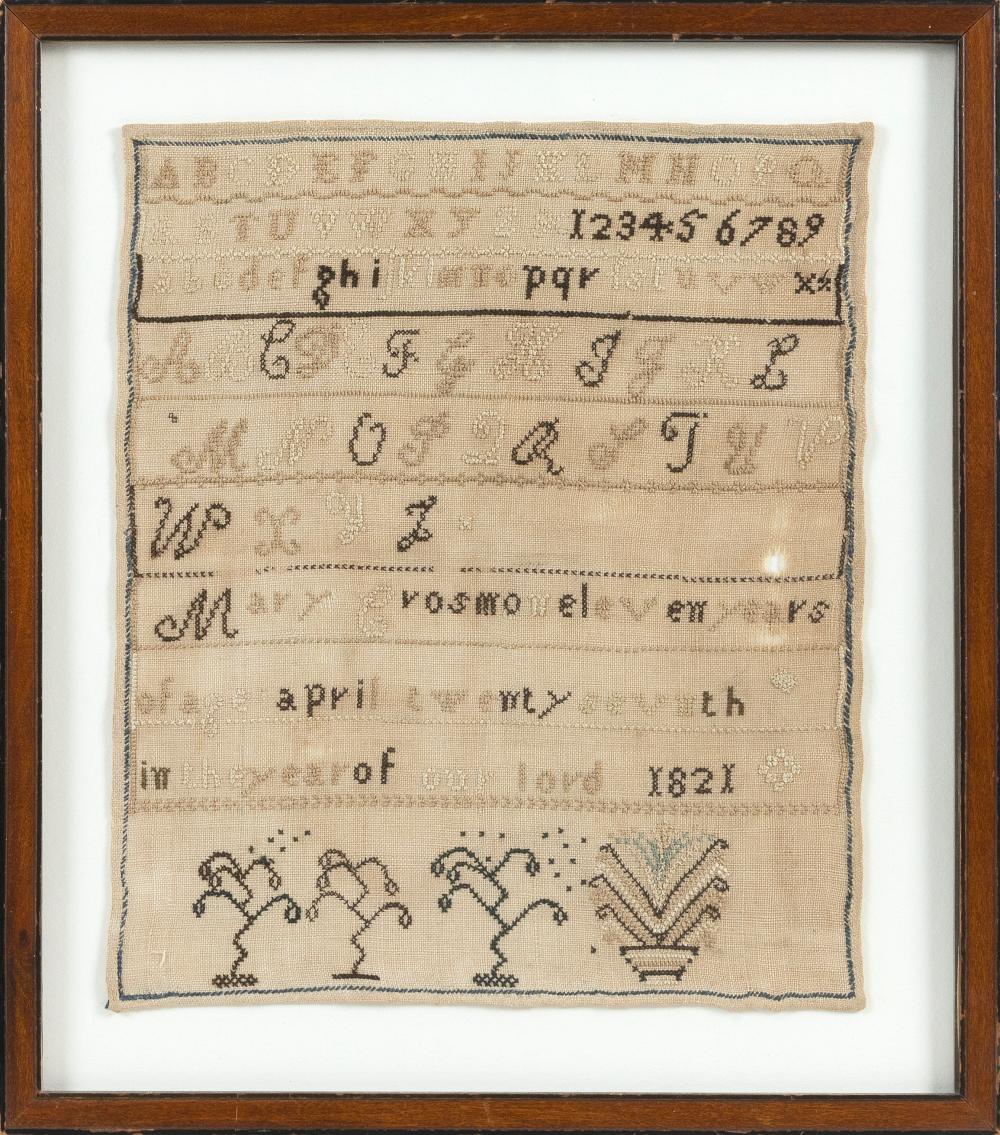 ABCDEFGHIJKLMNOPQ
RSTUVWXYZ & 123456789
abcdefghijklmnopqrſstuvwxyz
ABCDEFGHIJKL
MNOPQRSTUV
WXYZ
Mary Crosmon eleven years
of age april twenty sevnth
in the year of our lord 1821